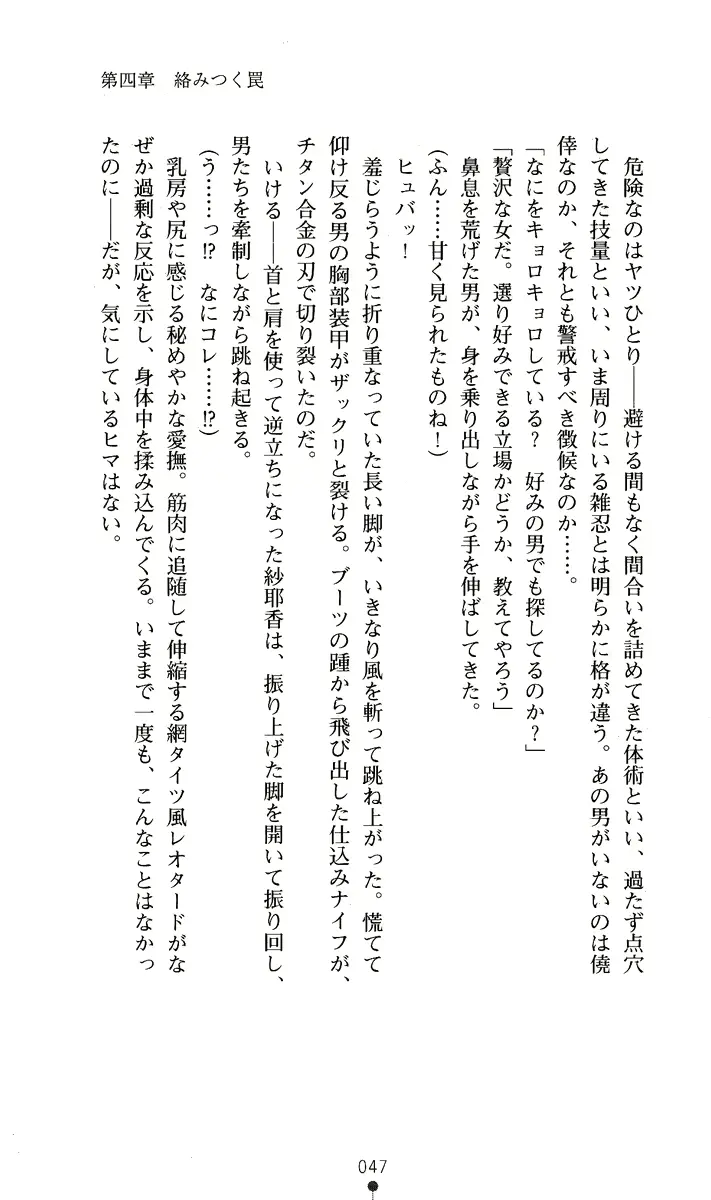 第四章　絡みつく罠
危険なのはヤツひとり――避ける間もなく間合いを詰めてきた体術といい、過たず点穴
してきた技量といい、いま周りにいる雑忍とは明らかに格が違う。あの男がいないのは僥
倖なのか、それとも警戒すべき徴候なのか……。
「なにをキョロキョロしている？　好みの男でも探してるのか？」
「贅沢な女だ。選り好みできる立場かどうか、教えてやろう」
鼻息を荒げた男が、身を乗り出しながら手を伸ばしてきた。
（ふん……甘く見られたものね！）
ヒュバッ！
羞じらうように折り重なっていた長い脚が、いきなり風を斬って跳ね上がった。慌てて
仰け反る男の胸部装甲がザックリと裂ける。ブーツの踵から飛び出した仕込みナイフが、
チタン合金の刃で切り裂いたのだ。
いける――首と肩を使って逆立ちになった紗耶香は、振り上げた脚を開いて振り回し、
男たちを牽制しながら跳ね起きる。
（う……っ!?　なにコレ……!?）
乳房や尻に感じる秘めやかな愛撫。筋肉に追随して伸縮する網タイツ風レオタードがな
ぜか過剰な反応を示し、身体中を揉み込んでくる。いままで一度も、こんなことはなかっ
たのに――だが、気にしているヒマはない。
047